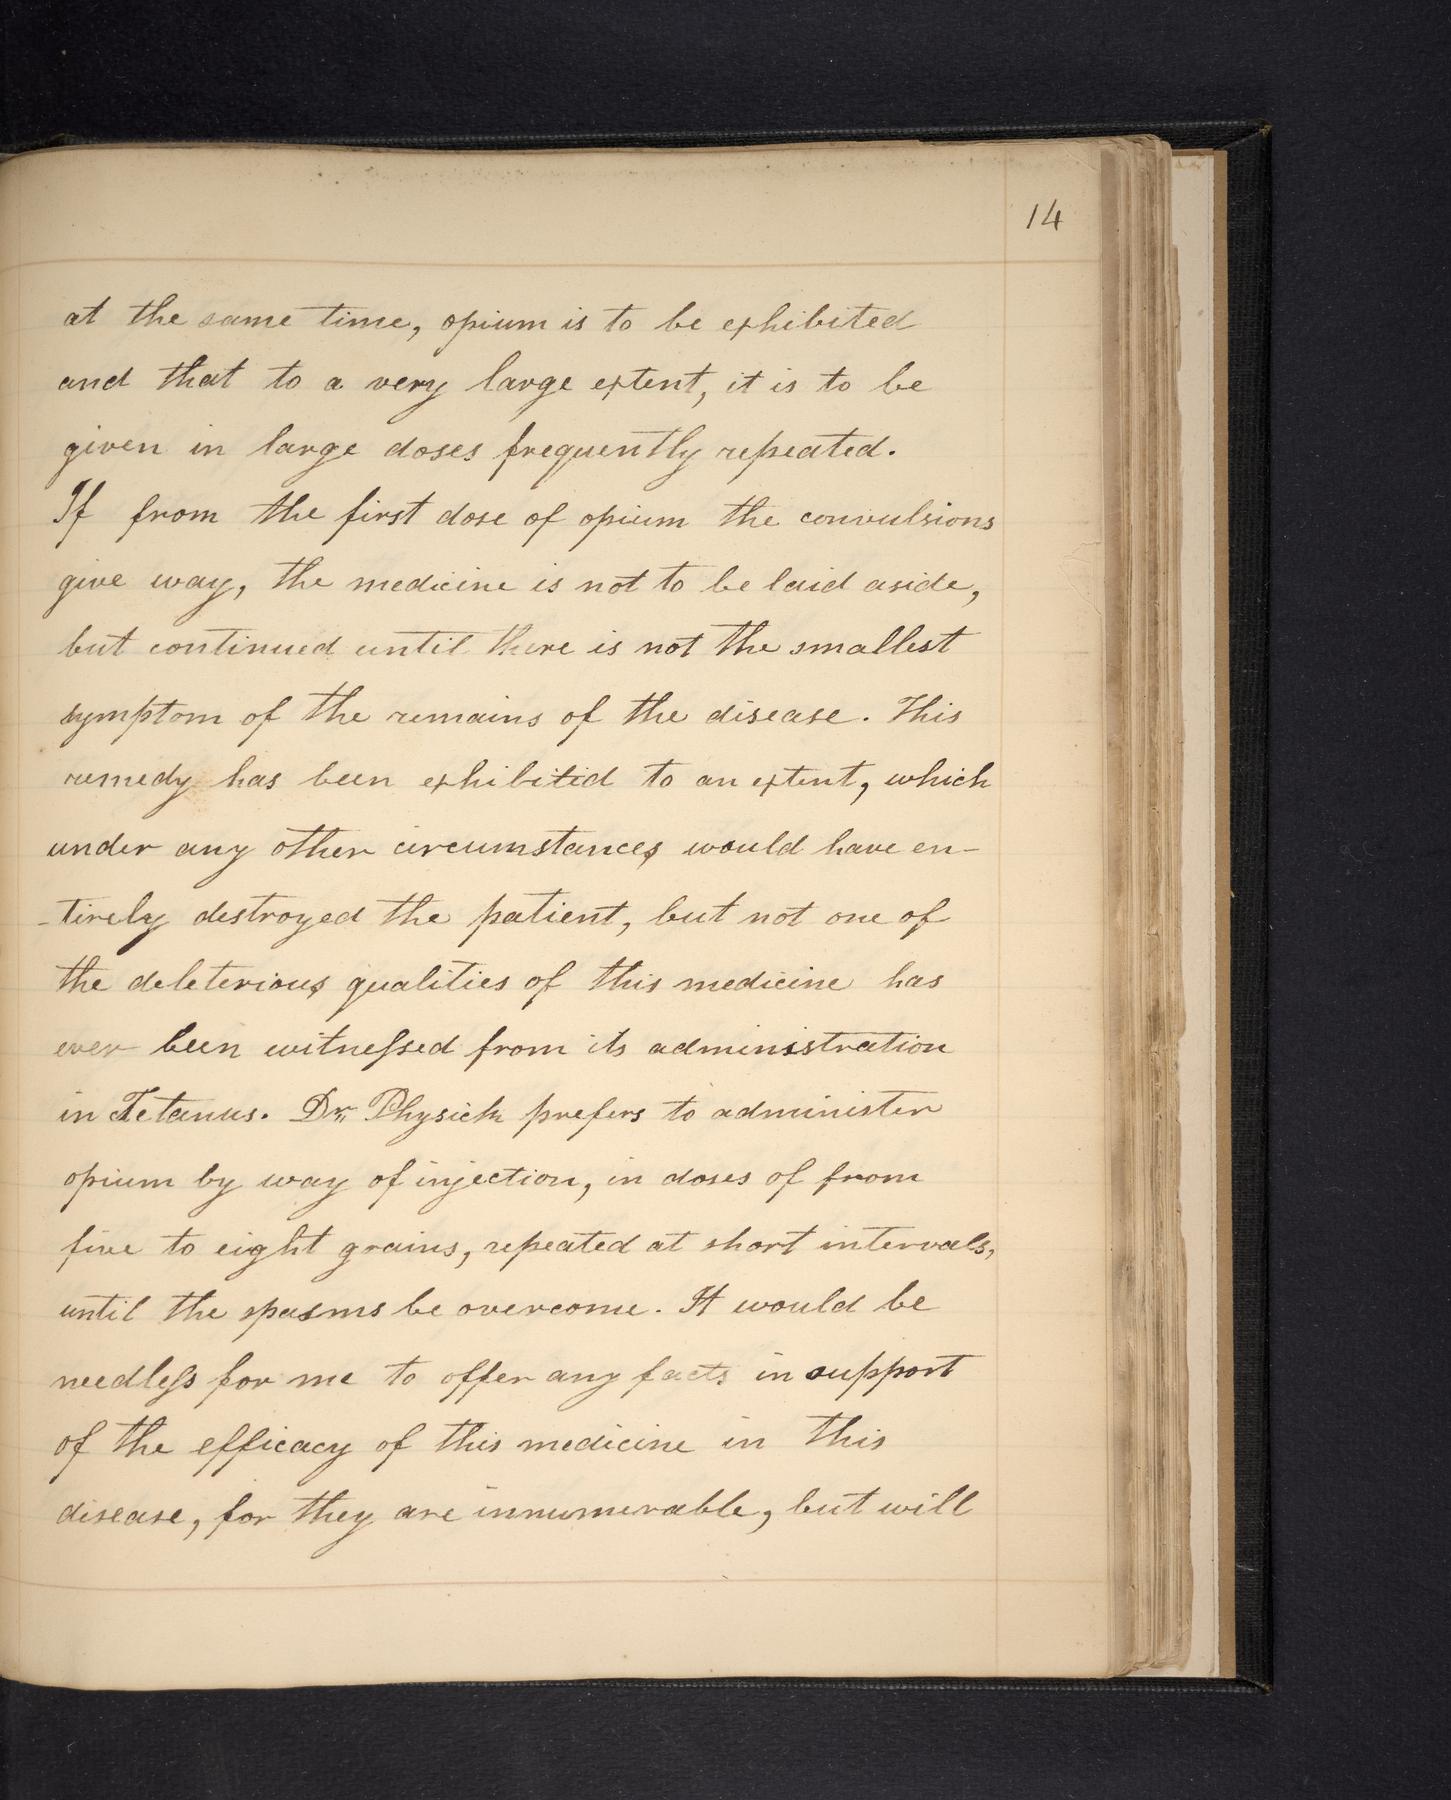 14
at the same time, opium is to be exhibited
and that to a very large extent, it is to be
given in large doses frequently repeated.
If from the first dose of opium the convulsions
give way, the medicine is not to be laid aside,
but continued until there is not the smallest
symptom of the remains of the disease. This
remedy has been exhibited to an extent, which
under any other circumstances would have en-
-tirely destroyed the patient, but not one of
the deleterious qualities of this medicine has
ever been witnessed from its administration
in Tetanus. Dr. Physick prefers to administer
opium by way of injection, in doses of from
five to eight grains, repeated at short intervals,
until the spasms be overcome. It would be
needless for me to offer any facts in support
of the efficacy of this medicine in this
disease, for they are innumerable, but will